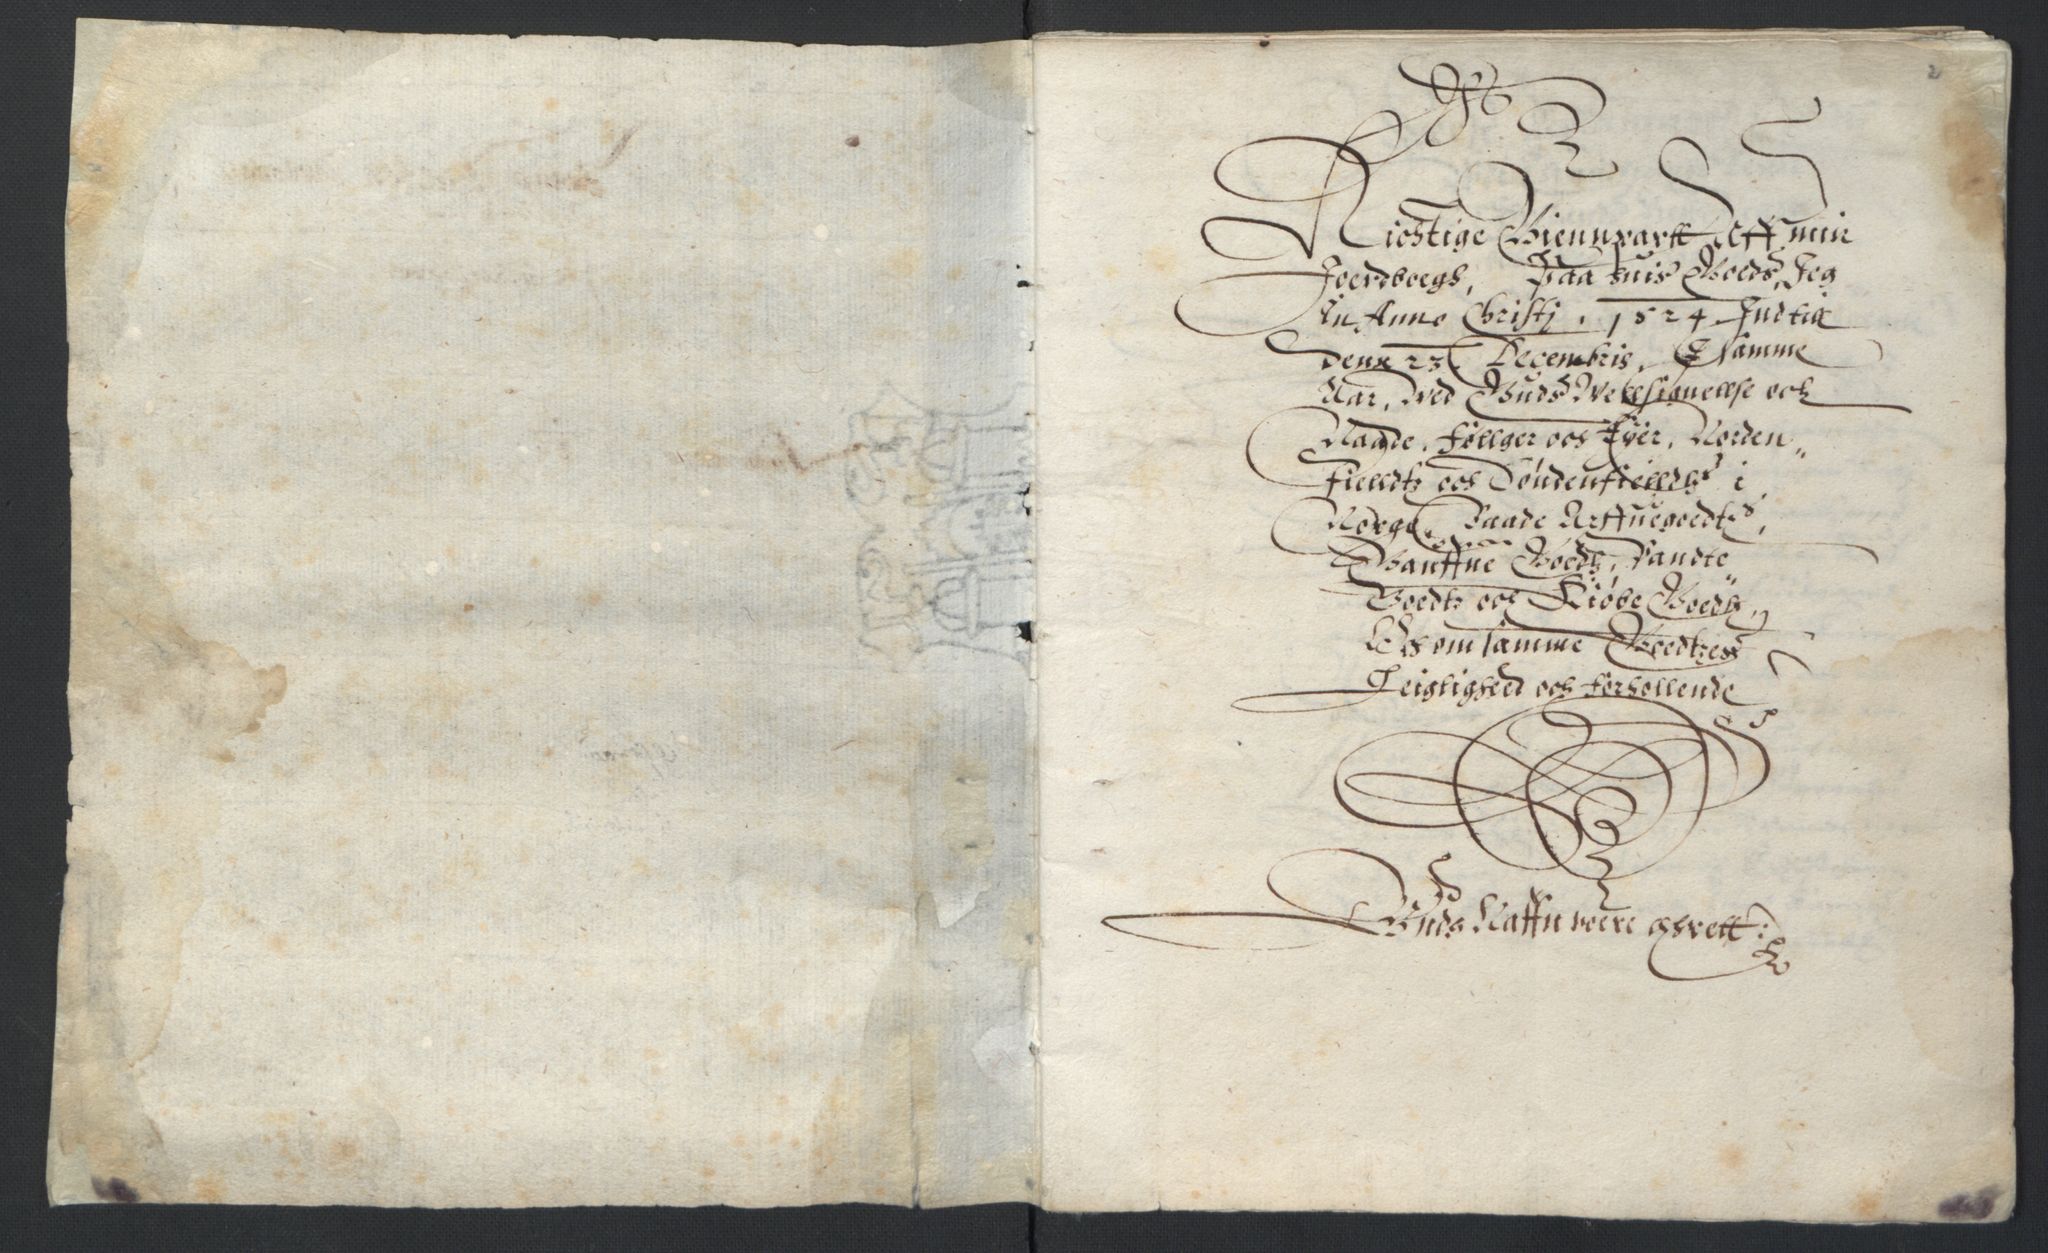 2
Richtige Giennpartt Aff min
Joerdbogh, Paa huis Goeds, Jeg
In Anno Christj . 1624 Indtil
denn 23 Decembris, I samme
Aar, wed Guds Welsignellse och
Naade, föllger och Eyer, Norden„
Fielldtz och Söndenfielldtz i
Norge, Baade Arffuegoedtz,
Gauffue Goedtz, Pandte„
Goedtz och Kiöbe Goedtz,
Och om samme Goedtzes
Leiglighed och forhollende
Guds Naffn were æhrett: